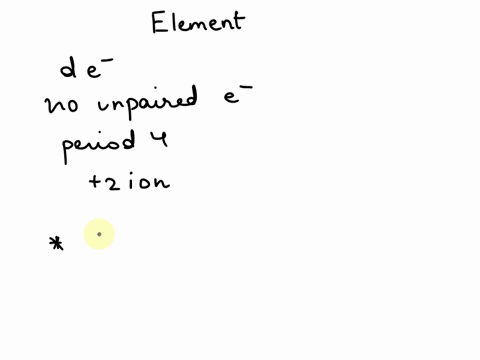 Element
d e⁻
no unpaired e⁻
period 4
+2 ion
*